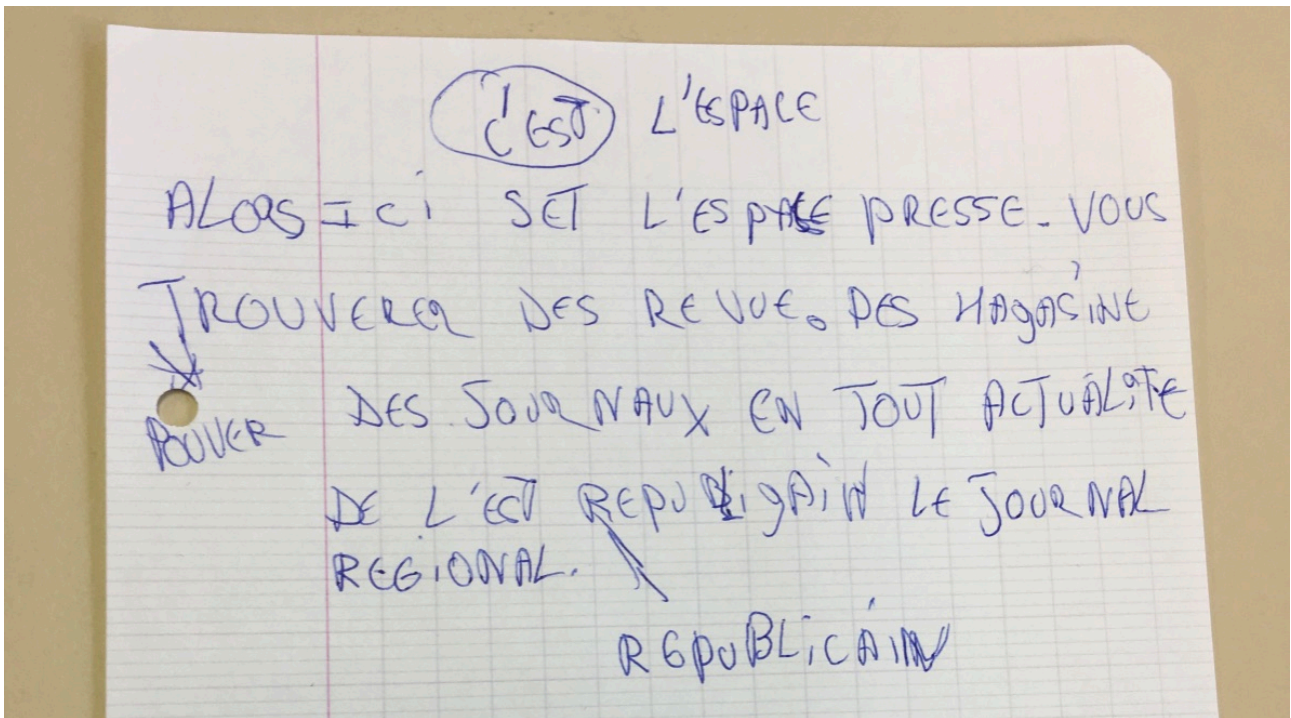 C'EST L'ESPACE
ALORS ICI SET L'ESPACE PRESSE. VOUS
TROUVERER DES REVUE. DES MAGASINE
DES JOURNAUX EN TOUT ACTUALITE
POUVER
DE L'EST REPUBLIGAIN LE JOURNAL
REGIONAL.
REPUBLICAIN